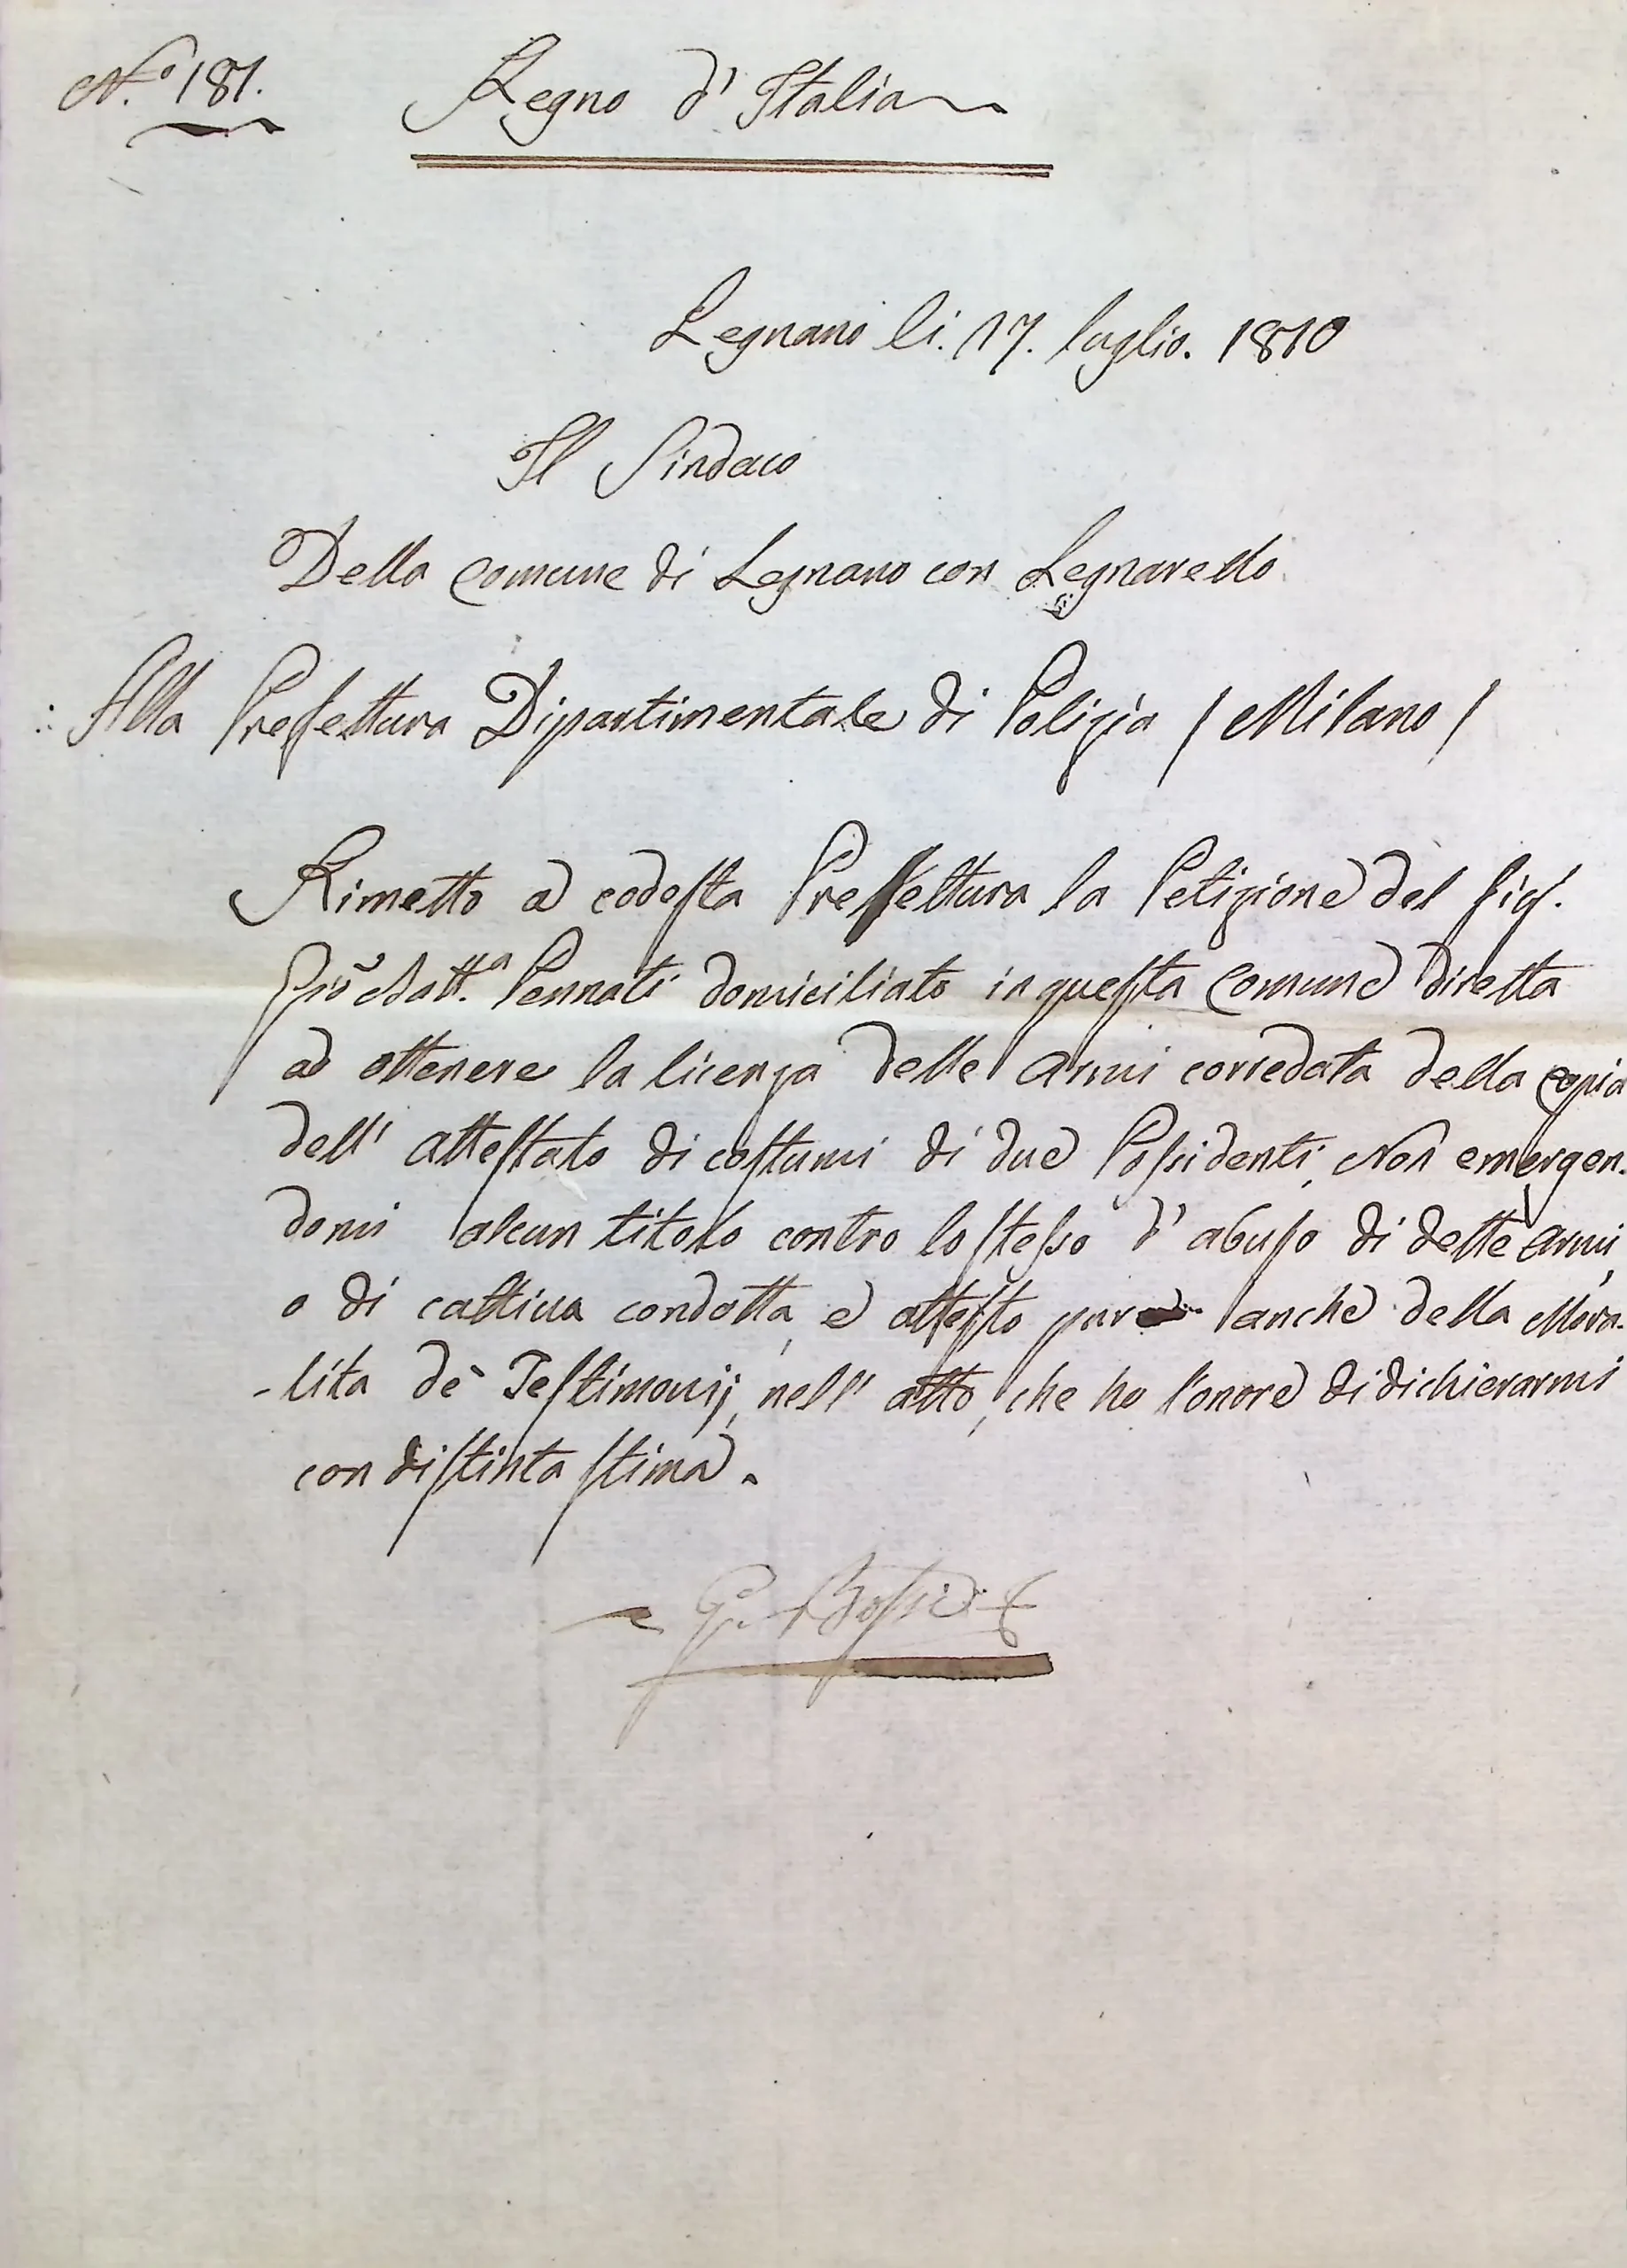 N.º 181. Regno d'Italia
Legnano li. 17. luglio. 1810
Il Sindaco
Della Comune di Legnano con Legnarello
Alla Prefettura Dipartimentale di Polizia / Milano /
Rimetto a codesta Prefettura la Petizione del Sig.
Gio Batt.a Pennati domiciliato in questa Comune diretta
ad ottenere la licenza delle Armi corredata della Copia
dell' attestato di costumi di due Possidenti, Non emergen-
domi alcun titolo contro lo stesso d'abuso di dette Armi,
o di cattiva condotta, e attesto pure anche della Mora-
-lita de' Testimonij, nell' atto, che ho l'onore di dichierarmi
con distinta stima.